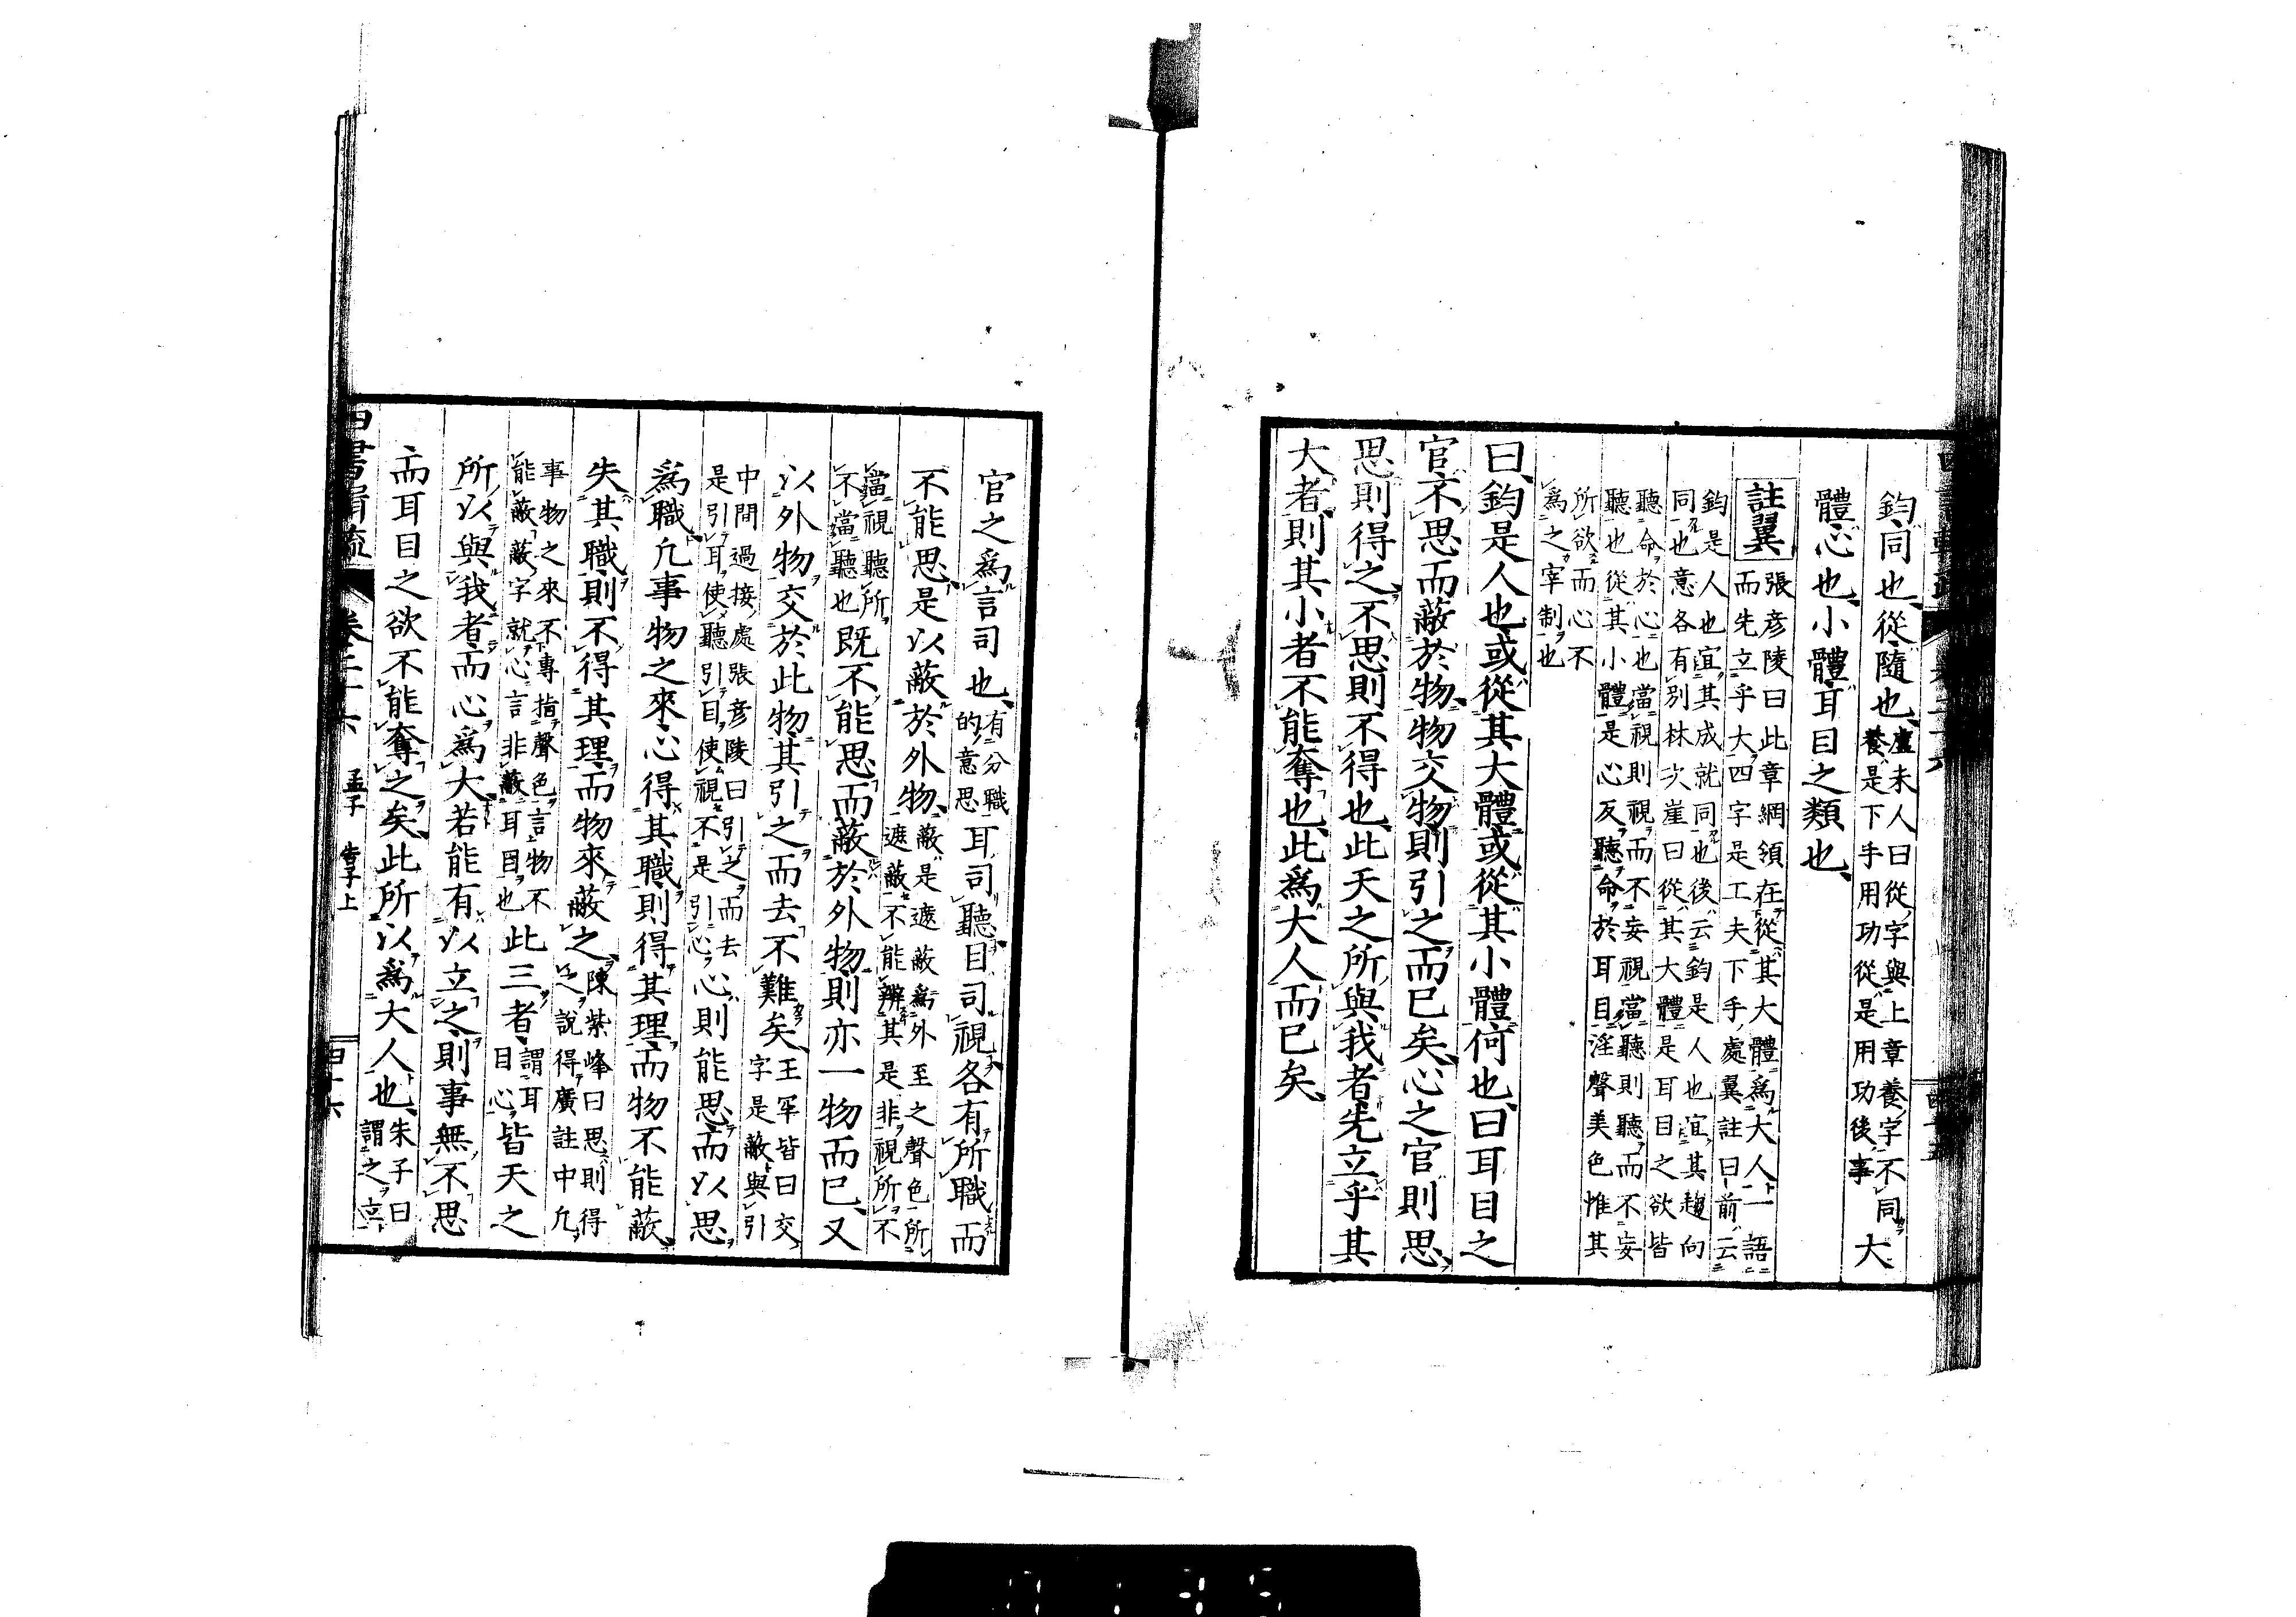 鈞、同也、從、隨也、盧未人曰從字與上章養字不同
養是下手用功從是用功後事大
體、心也、小體、耳目之類也、
註翼張彦陵曰此章綱領在從其大體爲大人一語
而先立乎大四字是工夫下手處翼註曰前云
鈞是人也宜其成就同也後云鈞是人也宜其趨向
同也意各有別林次崖曰從其大體是耳目之欲皆
聽命於心也當視則視而不妄視當聽則聽而不妄
聽也從其小體是心反聽命於耳目淫聲美色惟其
所欲而心不
爲之宰制也
曰、鈞是人也、或從其大體、或從其小體、何也、曰、耳目之
官、不思而蔽於物、物交物、則引之而已矣、心之官則思、
思則得之、不思則不得也、此天之所與我者、先立乎其
大者、則其小者不能奪也、此爲大人而已矣、
官之爲言司也、有分職
的意思耳司聽、目司視、各有所職、而
不能思、是以蔽於外物、蔽是遮蔽爲外至之聲色所
遮蔽不能辨其是非視所不
當視聽所
不當聽也既不能思而蔽於外物、則亦一物而已、又
以外物交於此物、其引之而去不難矣、王罕皆曰交
字是蔽與引
中間過接處張彦陵曰引之而去
是引耳使聽引目使視不是引心心則能思、而以思
爲職、凡事物之來、心得其職、則得其理、而物不能蔽、
失其職、則不得其理、而物來蔽之、陳紫峰曰思則得
之說得廣註中凡
事物之來不專指聲色言物不
能蔽蔽字就心言非蔽耳目也此三者、謂耳
目心皆天之
所以與我者、而心爲大、若能有以立之、則事無不思、
而耳目之欲不能奪之矣、此所以爲大人也、朱子曰
謂之立
四書輯疏 卷二十六 孟子 告子上 四十六